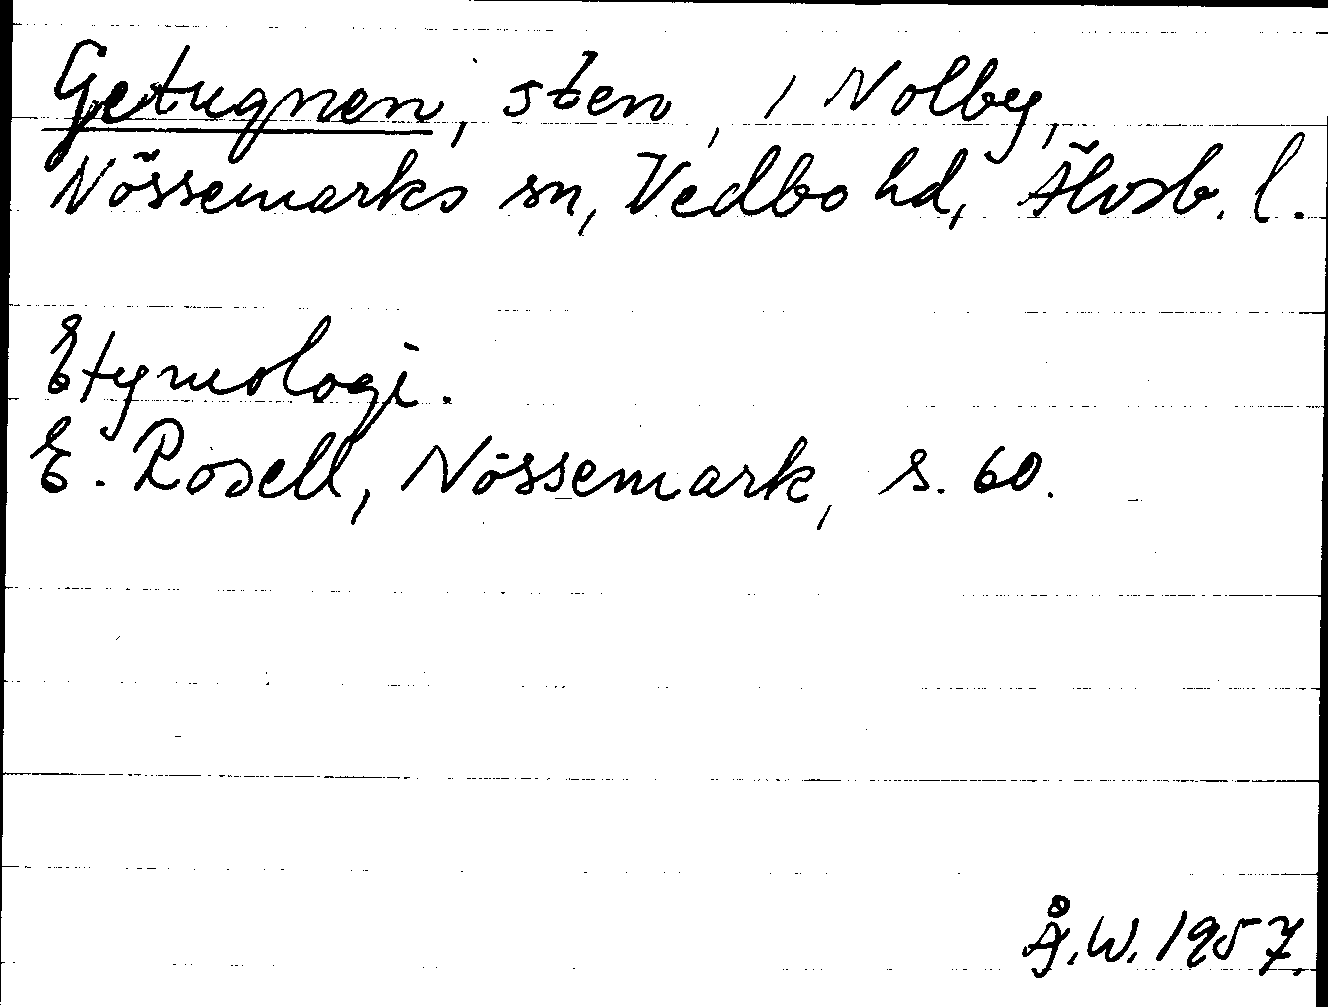 Getugnen, sten, i Nolby,
Nössemarks sn, Vedbo hd, Älvsb. l.
Etymologi.
E. Rosell, Nössemark, s. 60.
Å.W. 1957.